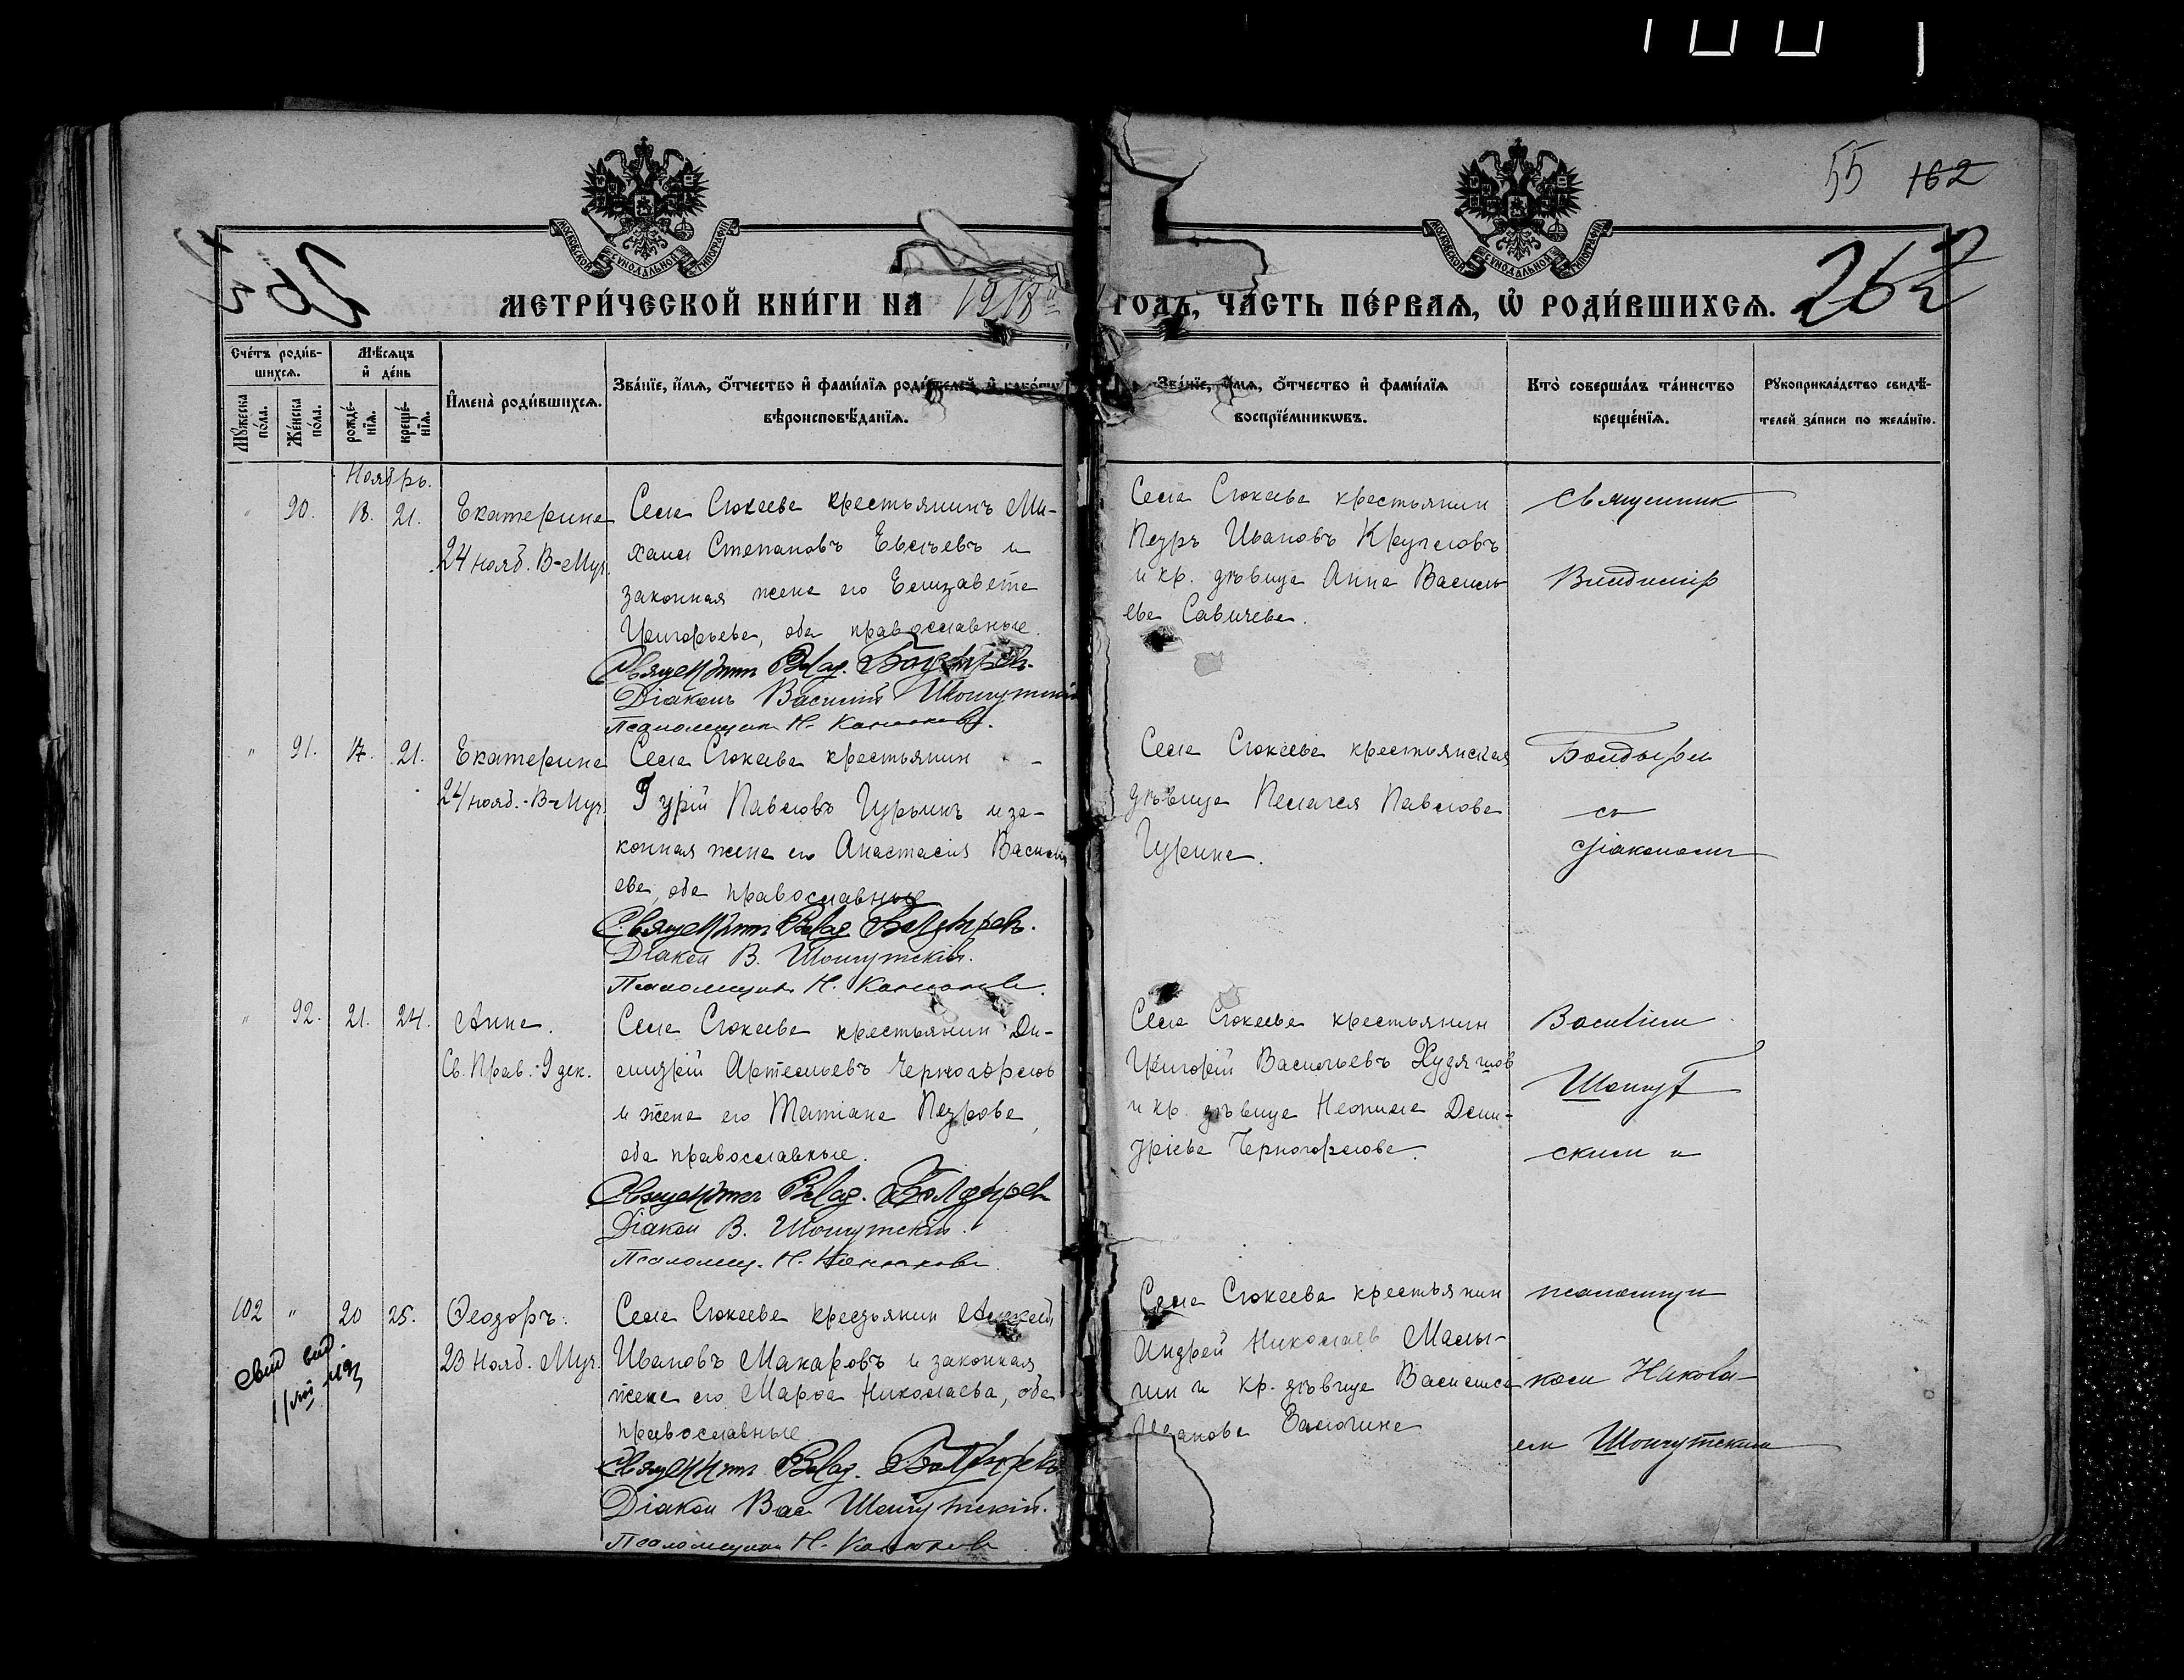 55 162
МОСКОВСКОЙ СѴНОДАЛЬНОЙ ТИПОГРАФІИ
МОСКОВСКОЙ СѴНОДАЛЬНОЙ ТИПОГРАФІИ
МЕТРИ́ЧЕСКОЙ КНИ́ГИ НА 1918 ГОДЪ, ЧА́СТЬ ПЕ́РВАѦ, Ѡ҆ РОДИ́ВШИХСѦ.
262
Сче́тъ роди́в-
шихсѧ.
Мѣ́сѧцъ
и҆ де́нь
Мꙋ́жеска по́ла.
Же́нска по́ла.
рожде́-
нїѧ.
креще́-
нїѧ.
И҆мена̀ роди́вшихсѧ.
Зва́нїе, и҆́мѧ, ѻ҆́тчество и҆ фами́лїѧ роди́телей, и҆
вѣроисповѣ́данїѧ.
Зва́нїе, и҆́мѧ, ѻ҆́тчество и҆ фами́лїѧ
воспрїе́мникѡвъ.
Кто̀ соверша́лъ та́инство
креще́нїѧ.
Рꙋкоприкла́дство свидѣ́-
телей за́писи по жела́нїю.
Ноябрь.
" 90. 13. 21. Екатерина
24 нояб. В-Муч.
Села Сюкеева крестьянинъ Ми-
хаил Степановъ Евсѣевъ и
законная жена его Елизавета
Григорьева, оба православные.
Священник Влад. Болдырев.
Діаконъ Василій Шонгутскій
Псаломщик Н. Канюков.
Села Сюкеева крестьянин
Петръ Ивановъ Кругловъ
и кр. дѣвица Анна Василь
ева Савичева.
Священник
Владимір
" 91. 17. 21. Екатерина
24 нояб. - В-Муч.
Села Сюкеева крестьянин -
Гурій Павловъ Гурьинъ и за-
конная жена его Анастасія Василь
ева, оба православные
Священник Влад. Болдырев.
Діакон В. Шонгутскій.
Псаломщик Н. Канюков.
Села Сюкеева крестьянская
дѣвица Пелагея Павлова
Гурина.
Болдырем
съ
діаконом
" 92. 21. 24. Анна.
Св. Прав. - 9 дек.
Села Сюкеева крестьянин Ди-
митрій Артемьевъ Черногорлов
и жена его Татіана Петрова,
оба православные.
Священник Влад. Болдырев
Діакон В. Шонгутскій.
Псаломщ. Н. Канюков.
Села Сюкеева крестьянин
Григорій Васильевъ Худяшов
и кр. дѣвица Неонила Дими-
тріева Черногорлова.
Василіем
Шонгут
ским и
102 " 20 25. Ѳеодоръ.
23 Нояб. Муч.
Села Сюкеева крестьянин Алексей
Ивановъ Макаровъ и законная
жена его Марѳа Николаева, оба
православные.
Священник Влад. Болдырев
Діакон Вас Шонгутскій.
Псаломщик Н. Канюков
Села Сюкеева крестьянин
Андрей Николаев Малы-
гин и кр. дѣвица Василиса
псаломщи
ком Никола-
ем Шонгутским